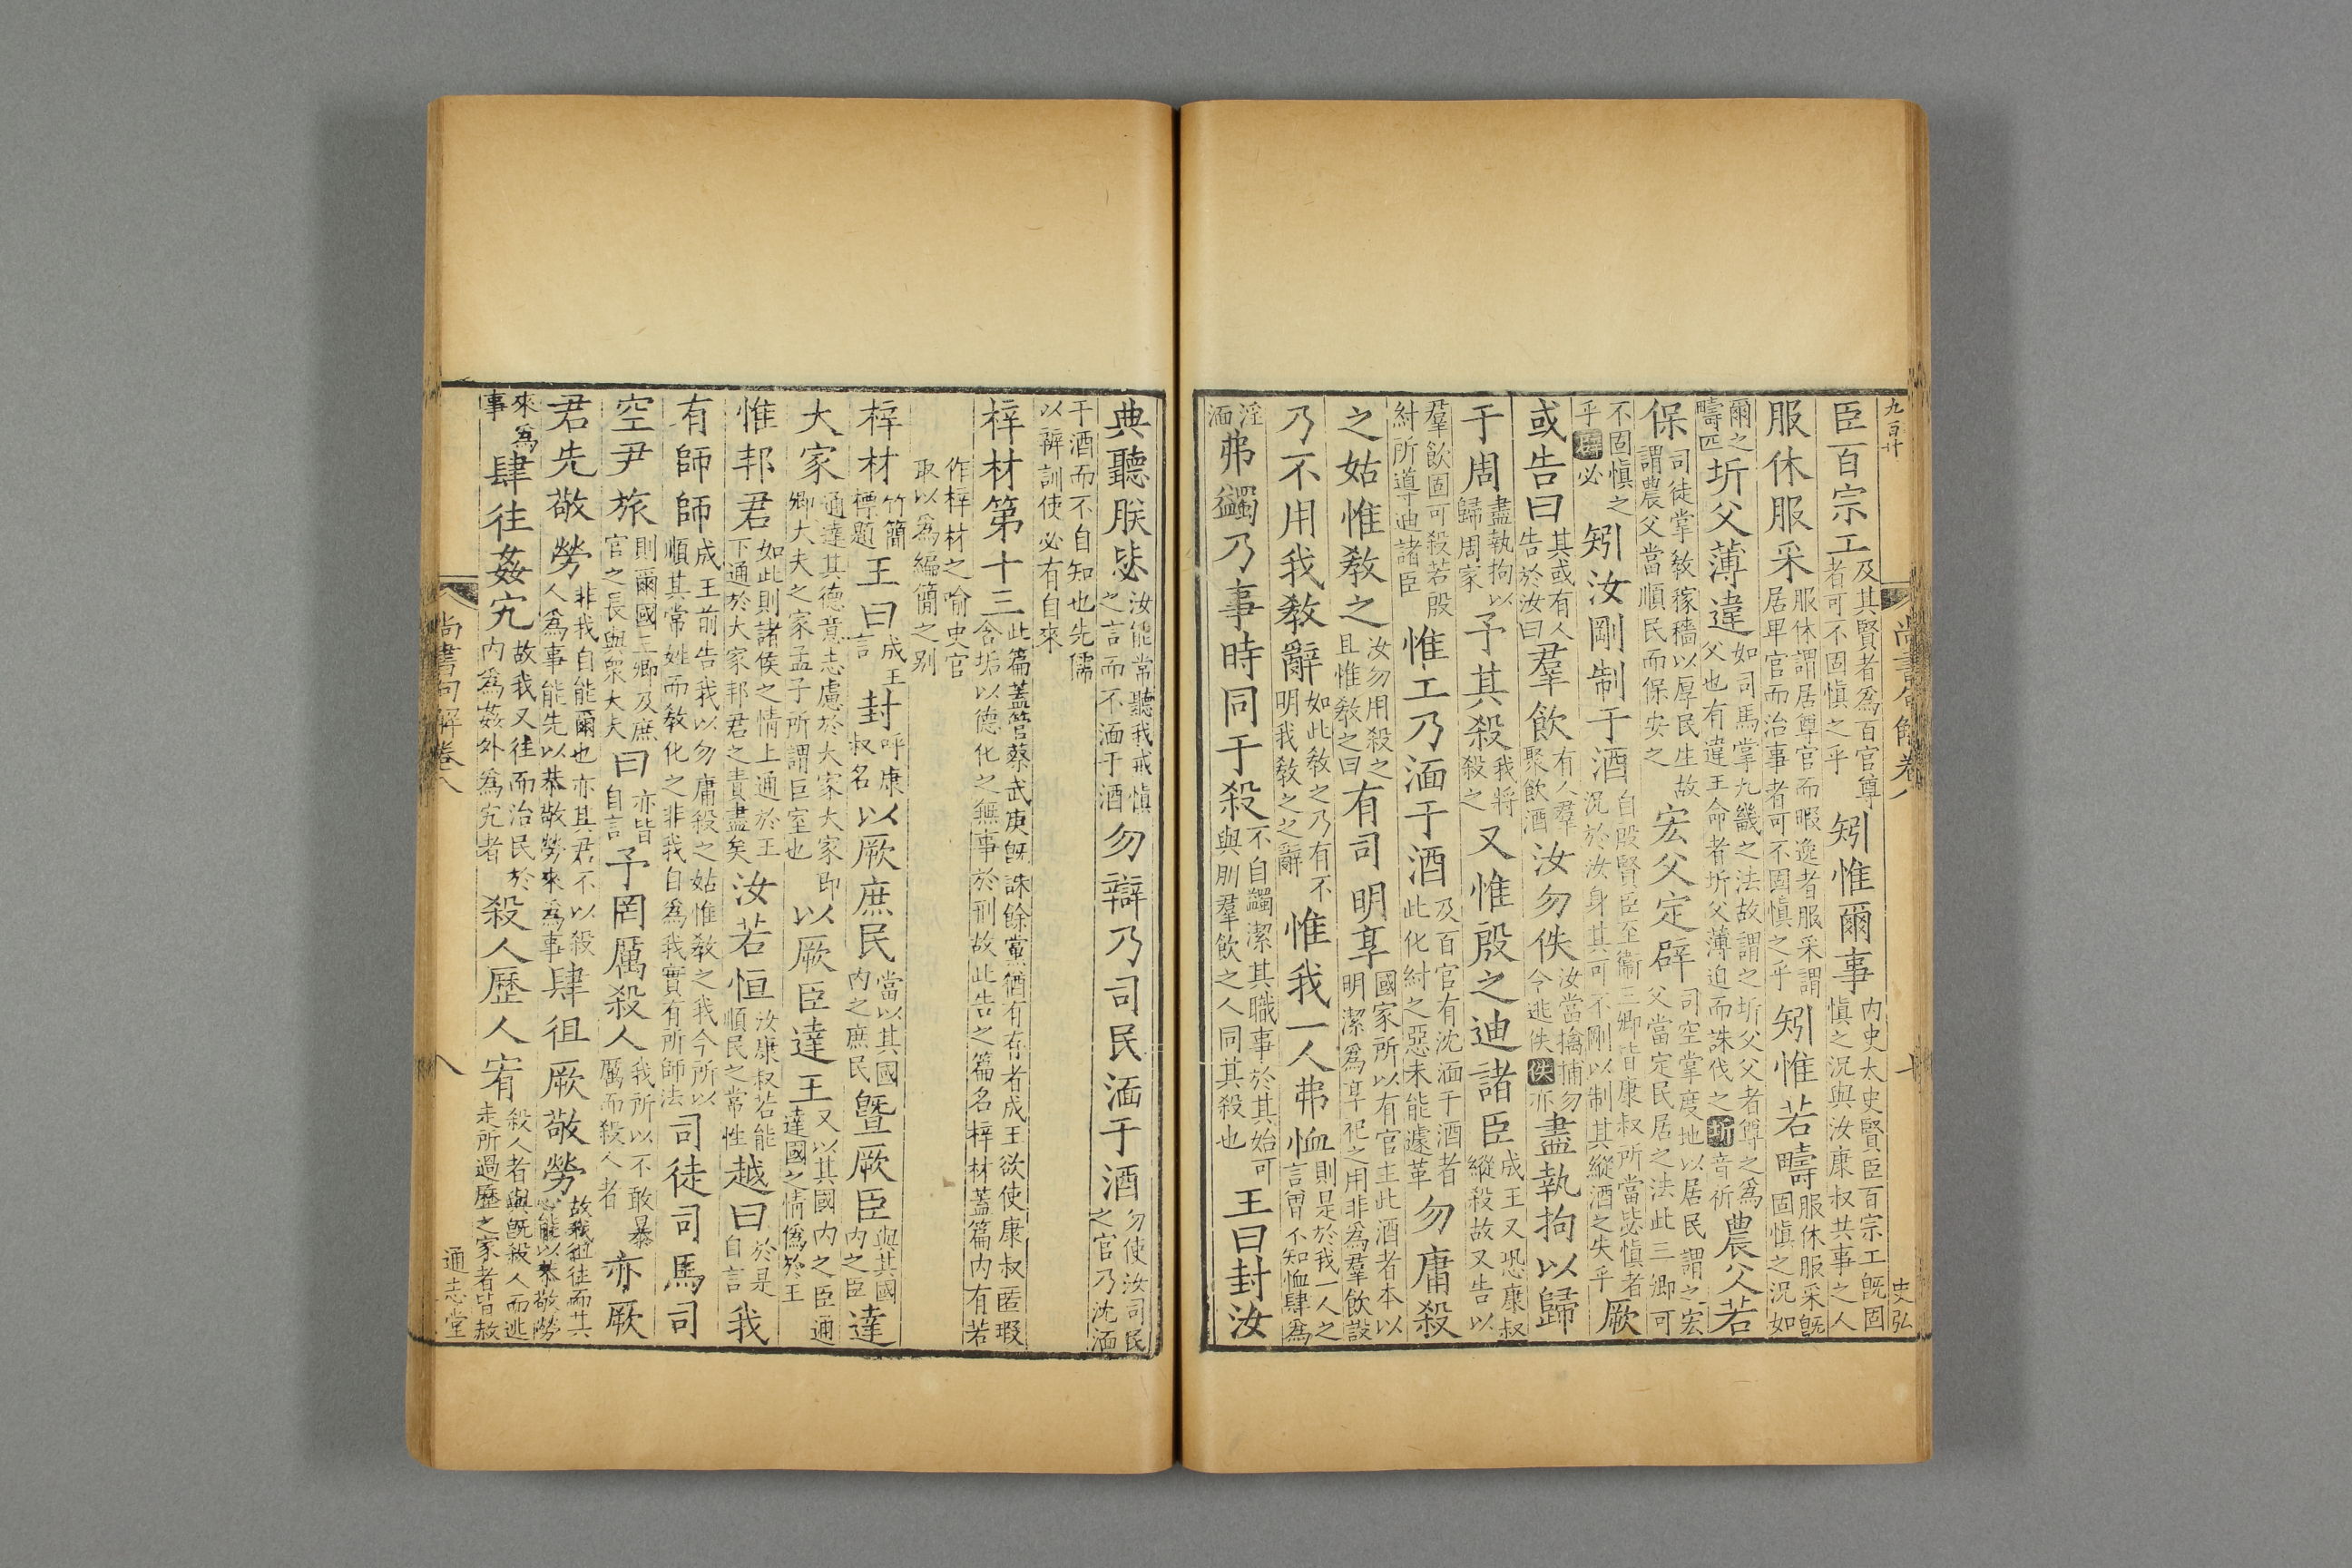 九百廿
尚書句解卷八
史弘
臣百宗工及其賢者為百官尊者可不固慎之乎矧惟爾事內史太史賢臣百宗工旣固慎之況與汝康叔共事之人
服休服采服休謂居尊官而暇逸者服采謂居卑官而治事者可不固慎之乎矧惟若疇服休服采旣固慎之況如
爾之疇匹圻父薄違如司馬掌九畿之法故謂之圻父父者尊之為父也有違王命者圻父薄迫而誅伐之圻音祈農父若
保司徒掌敎稼穡以厚民生故謂農父當順民而保安之宏父定辟司空掌度地以居民謂之宏父當定民居之法此三卿可
不固慎之乎辟必矧汝剛制于酒自殷賢臣至衞三卿皆康叔所當毖慎者況於汝身其可不剛以制其縱酒之失乎厥
或告曰其或有人告於汝曰羣飲有人羣聚飲酒汝勿佚汝當擒捕勿令逃佚佚亦盡執拘以歸
于周盡執拘以歸周家予其殺我將殺之又惟殷之迪諸臣成王又恐康叔縱殺故又告以
羣飲固可殺若殷紂所導迪諸臣惟工乃湎于酒及百官有沈湎于酒者此化紂之惡未能遽革勿庸殺
之姑惟敎之汝勿用殺之且惟敎之曰有司明享國家所以有官主此酒者本以明潔為享祀之用非為羣飲設
乃不用我敎辭如此敎之乃有不明我敎之之辭惟我一人弗恤則是於我一人之言曽不知恤肆為
淫湎弗蠲乃事時同于殺不自蠲潔其職事於其始可與刖羣飲之人同其殺也王曰封汝
典聽朕毖汝能常聽我戒慎之言而不湎于酒勿辯乃司民湎于酒勿使汝司民之官乃沈湎
于酒而不自知也先儒以辯訓使必有自來
梓材第十三此篇蓋管蔡武庚旣誅餘黨猶有存者成王欲使康叔匿瑕含垢以德化之無事於刑故此告之篇名梓材蓋篇內有若
作梓材之喻史官取以為編簡之别
梓材竹簡標題王曰成王言封呼康叔名以厥庶民當以其國內之庶民曁厥臣與其國內之臣達
大家通達其德意志慮於大家大家即卿大夫之家孟子所謂巨室也以厥臣達王又以其國內之臣通達國之情偽於王
惟邦君如此則諸侯之情上通於王下通於大家邦君之責盡矣汝若恒汝康叔若能順民之常性越曰於是自言我
有師師成王前告我以勿庸殺之姑惟敎之我今所以順其常姓而敎化之非我自為我實有所師法司徒司馬司
空尹旅則爾國三卿及庶官之長與衆大夫曰亦皆自言予罔厲殺人我所以不敢暴厲而殺人者亦厥
君先敬勞非我自能爾也亦其君不以殺人為事能先以恭敬勞來為事肆徂厥敬勞故我徂往而其心能以恭敬勞
來為事肆往姦宄故我又往而治民於內為姦外為宄者殺人歷人宥殺人者與旣殺人而逃走所過歷之家者皆赦
尚書句解卷八
八
通志堂